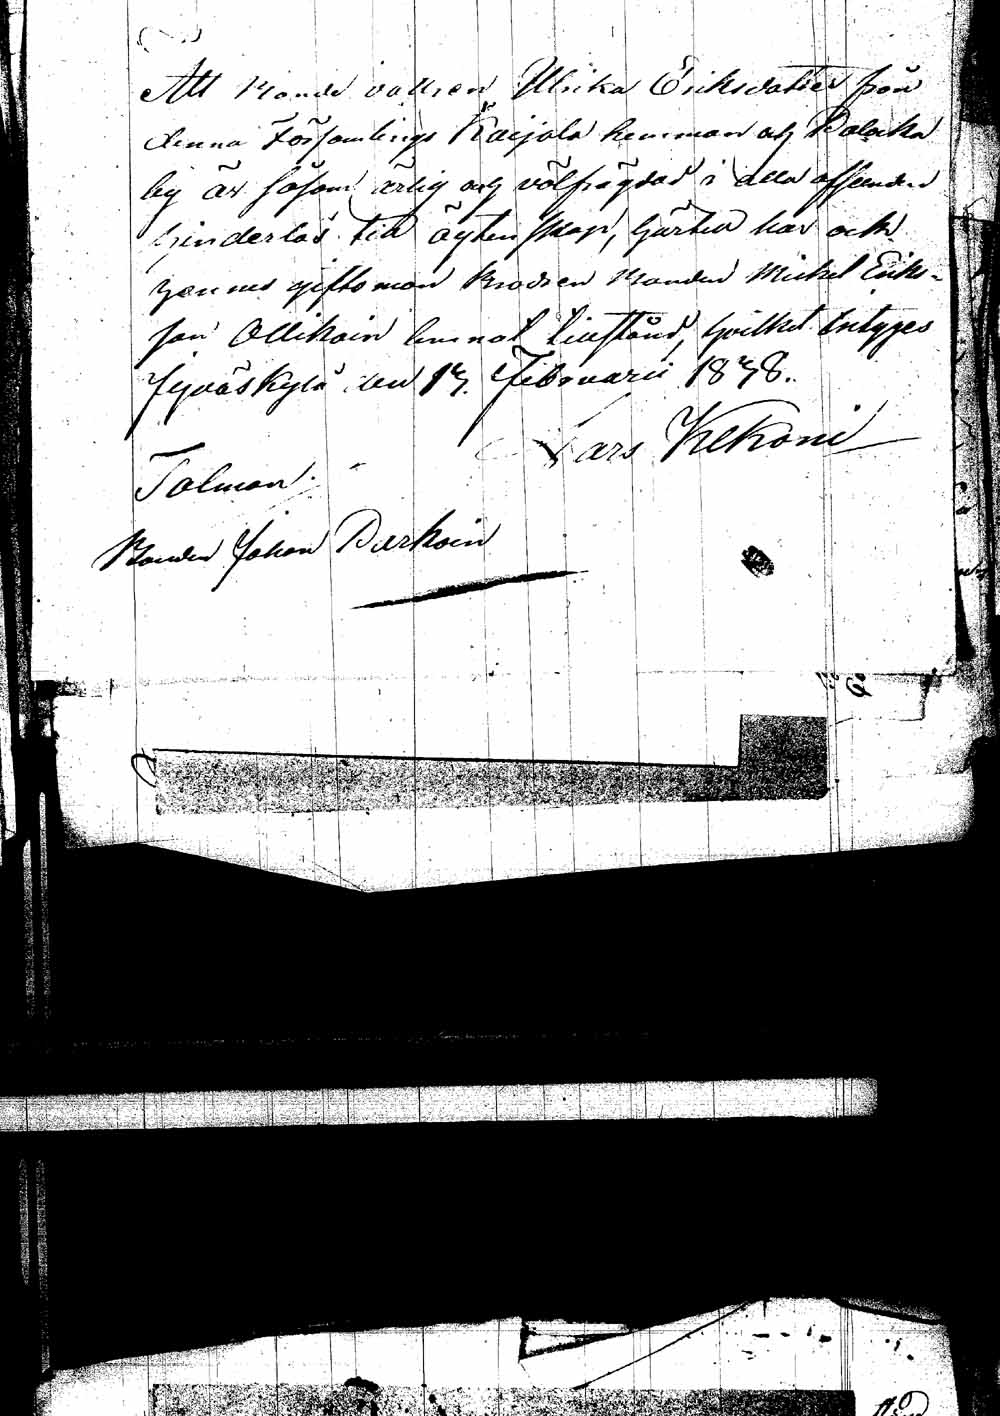 Att Bonde dottren Ulrika Eriksdotter från
denna Församlings Kaijola hemman och Palokka
by är såsom ärlig och välfrägdad i alla afseenden
hinderlös till ägtenskap, hvartill har och
hennes giftoman Brodren Bonden Mickel Eriks-
son Ollikain lemnat tillstånd, hvilket intyges
Jyväskylä den 17. Februarii 1878.
Lars Kekoni
Talman.
Bonden Johan Parkoin